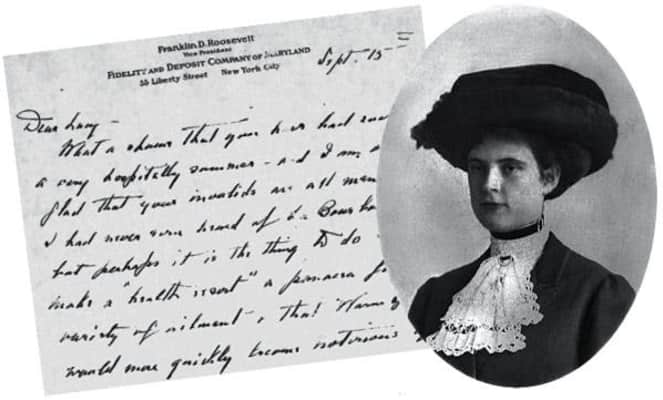 Franklin D. Roosevelt
Vice President
FIDELITY AND DEPOSIT COMPANY OF MARYLAND
55 Liberty Street New York City
Sept. 15
Dear Lucy -
What a shame that you have had such
a very hospitally summer - and I am
glad that your invalids are all
I had never even heard of
but perhaps it is the thing to do
make a "health resort" a panacea
variety of ailments, that Warm
would more quickly become notorious